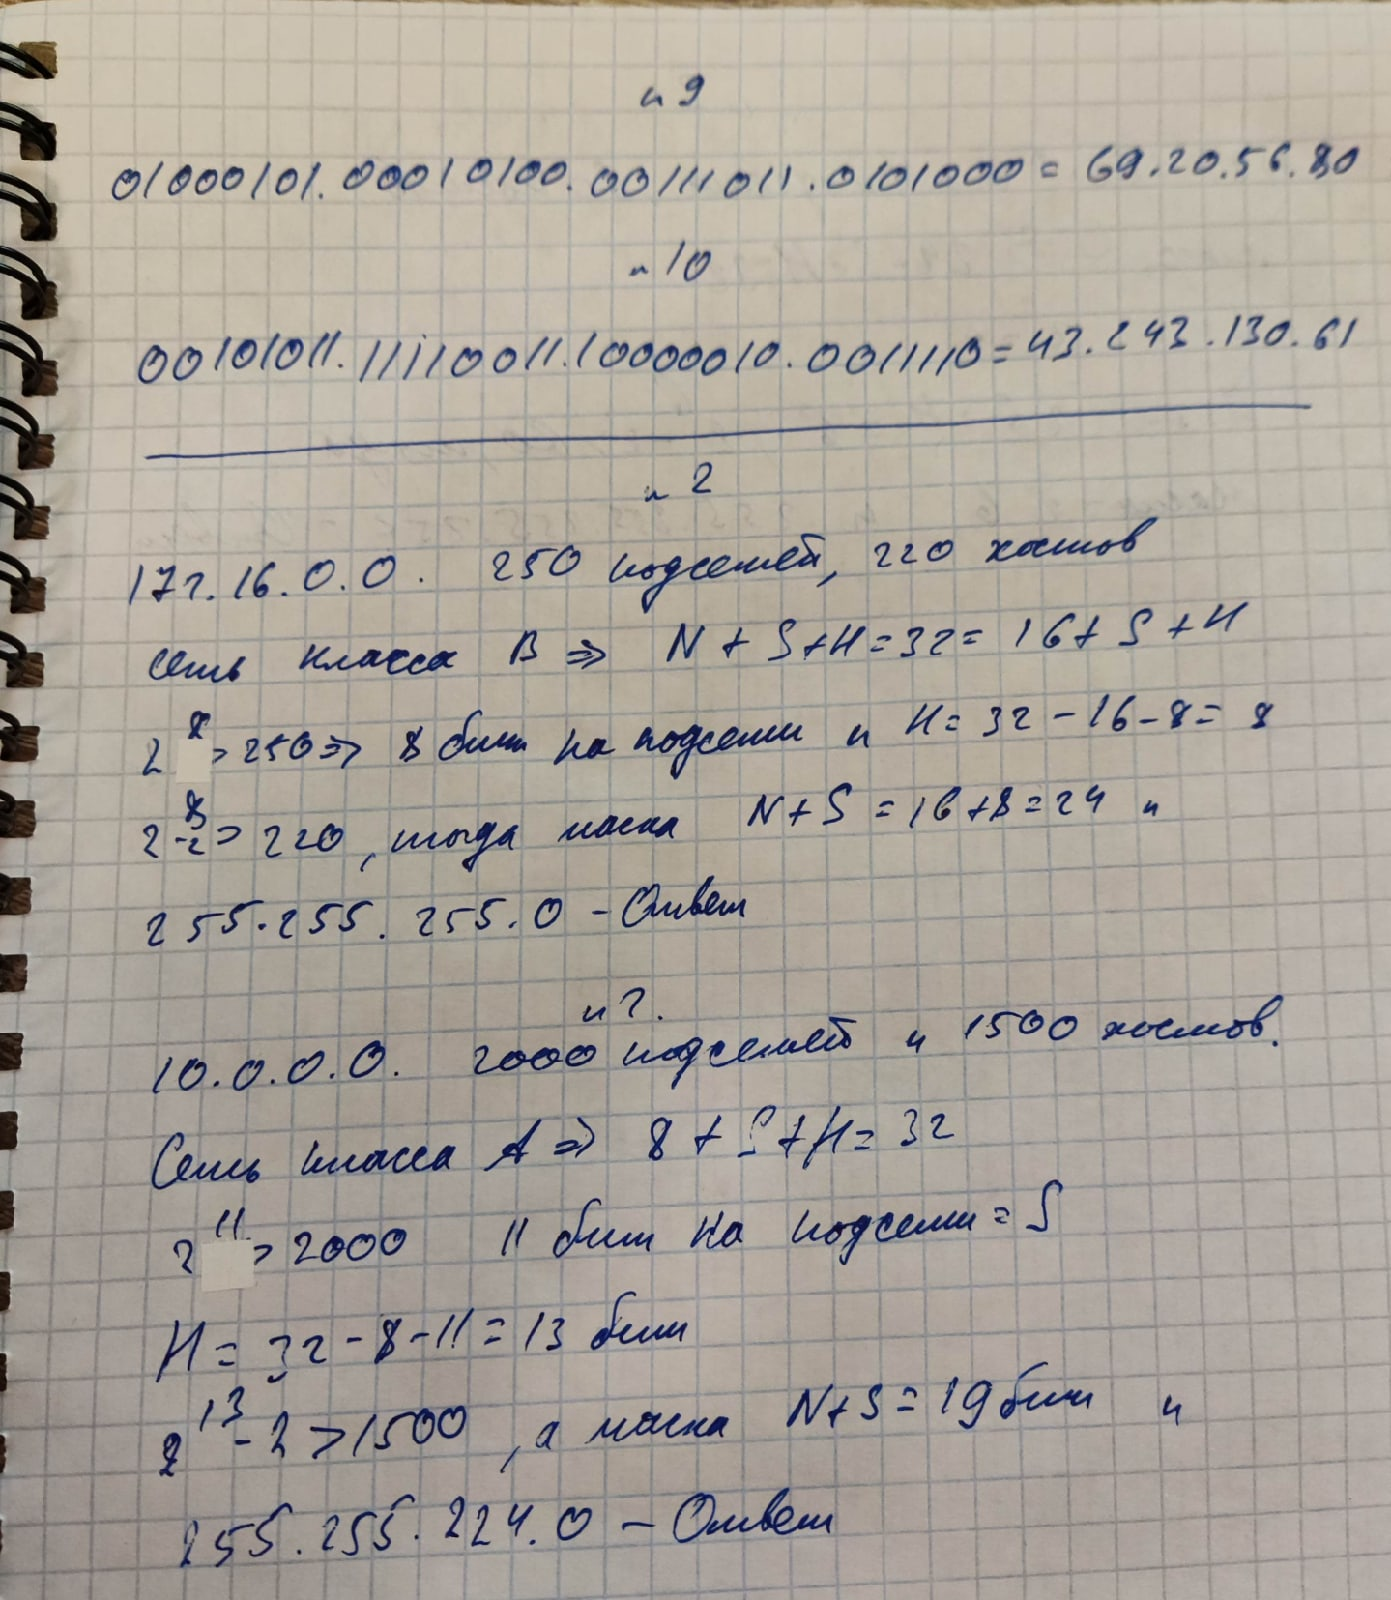 п 9
01000101.00010100.00111011.0101000 = 69.20.56.80
п 10
00101011.11110011.10000010.0011110 = 43.243.130.61
п 2
172.16.0.0. 250 подсетей, 220 хостов
сеть класса B ⇒ N + S + H = 32 = 16 + S + H
2^8 > 250 ⇒ 8 бит на подсети и H = 32 - 16 - 8 = 8
2^8 - 2 > 220, тогда маска N + S = 16 + 8 = 24 и
255.255.255.0 - Ответ
п ?.
10.0.0.0. 2000 подсетей и 1500 хостов.
Сеть класса A ⇒ 8 + S + H = 32
2^11 > 2000 11 бит на подсети = S
H = 32 - 8 - 11 = 13 бит
2^13 - 2 > 1500, а маска N + S = 19 бит и
255.255.224.0 - Ответ